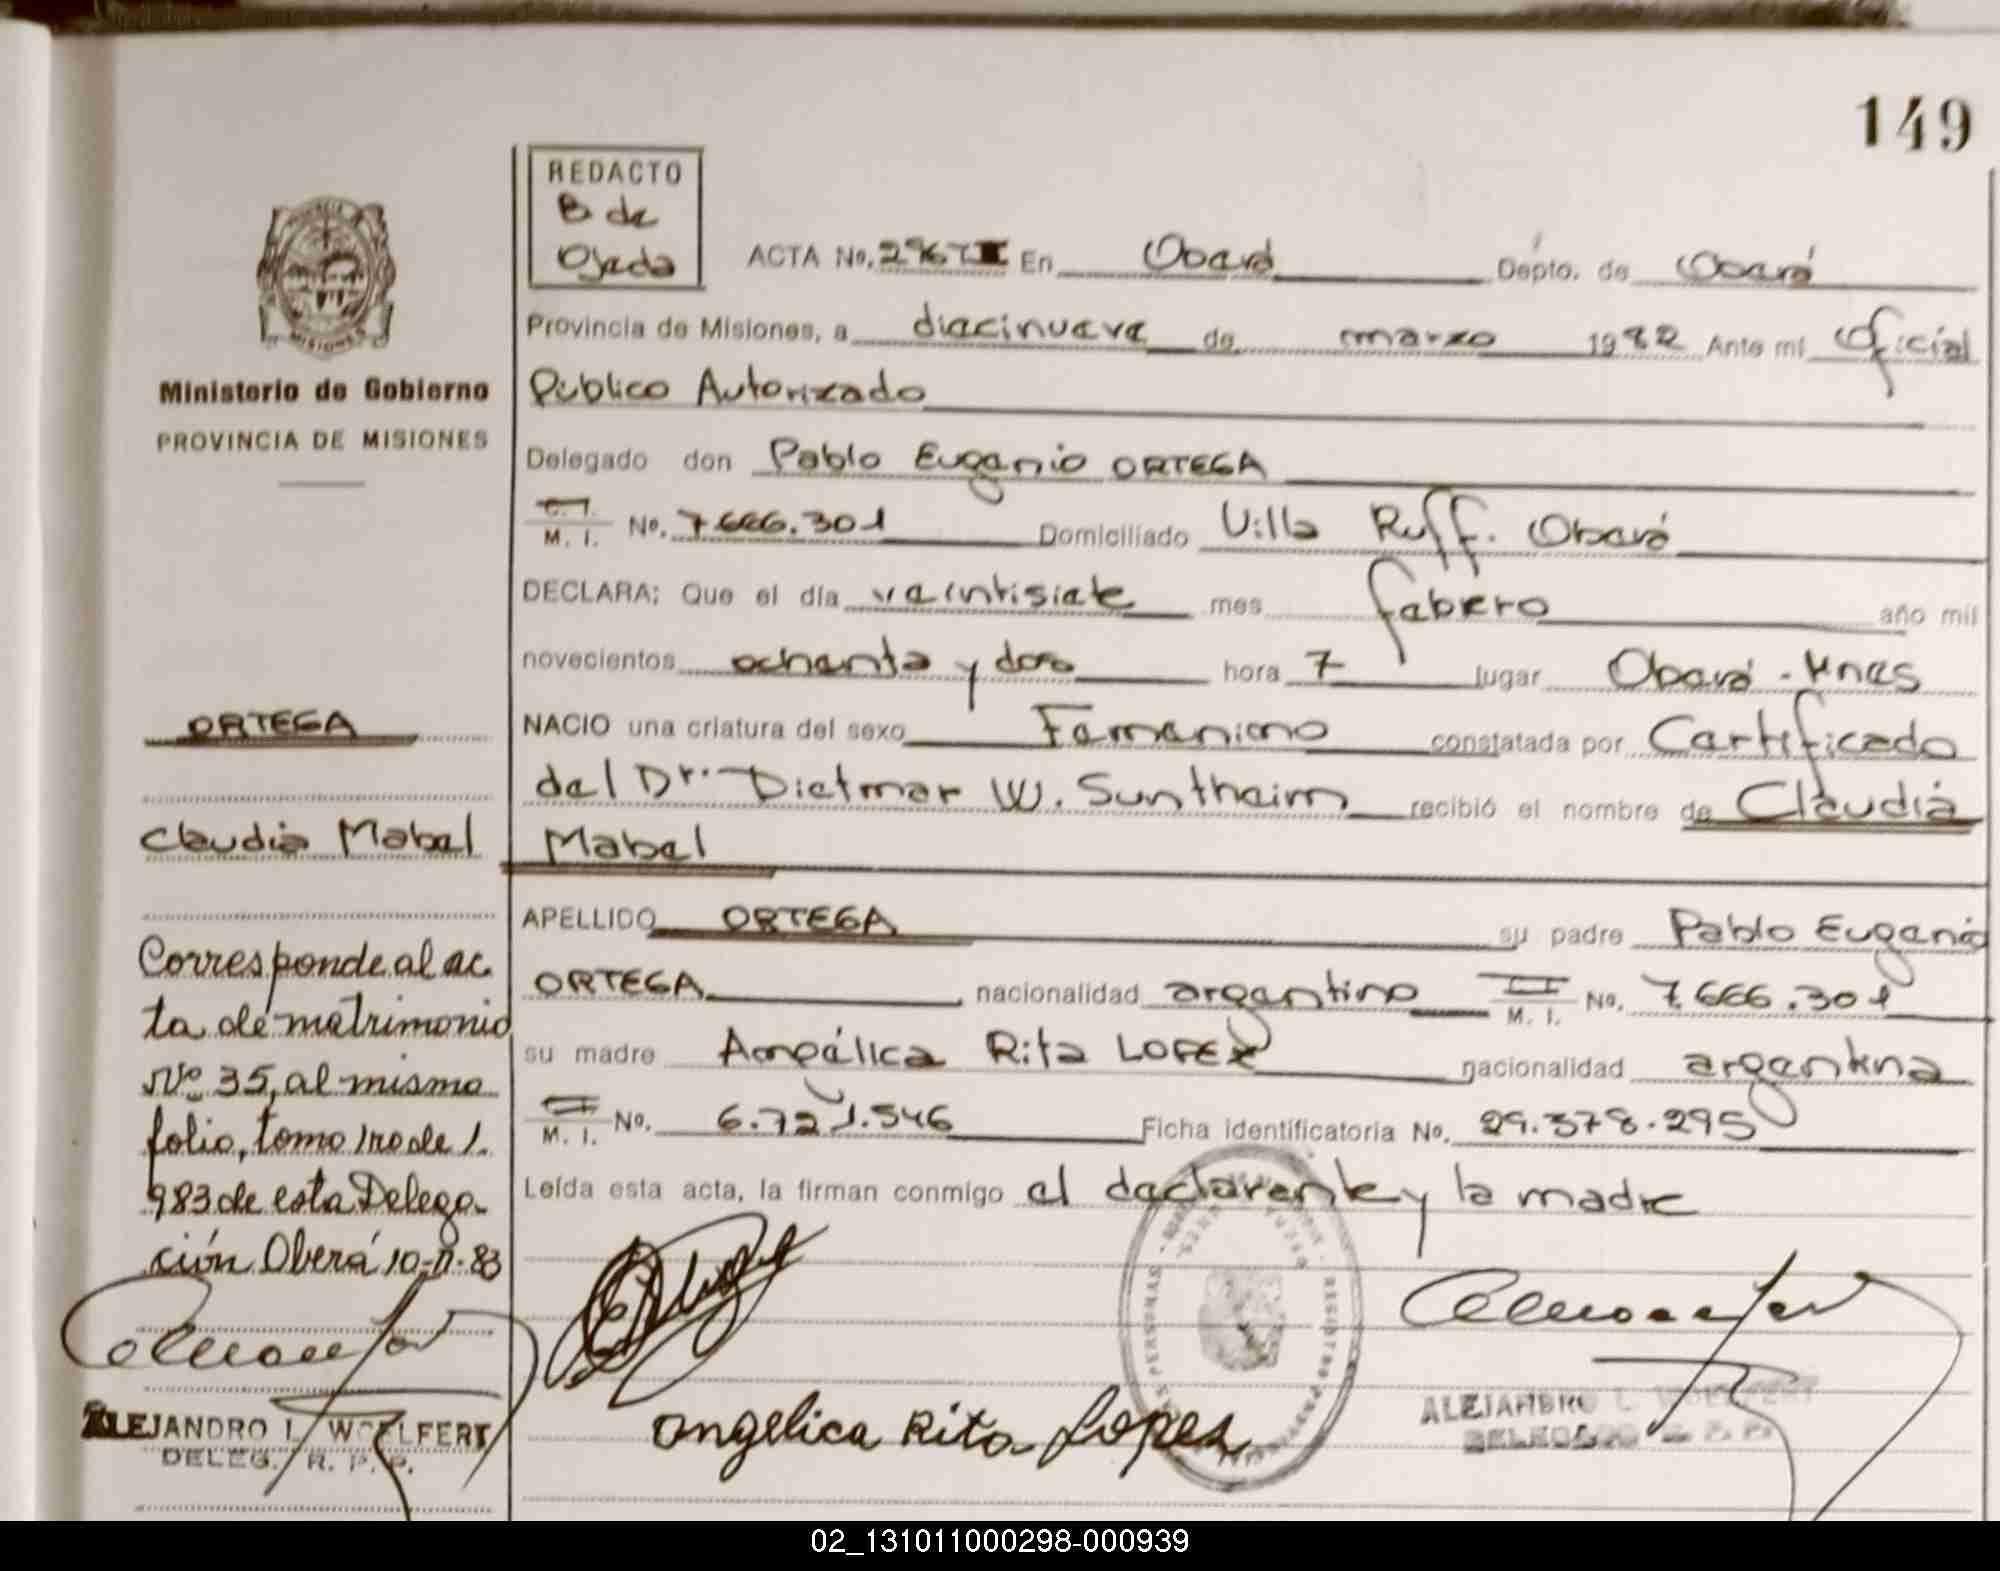 149
REDACTO
B de
Ojeda
ACTA No. En Oberá Depto. de Oberá
Provincia de Misiones, a diecinueve de marzo 1982 Ante mi Oficial
Publico Autorizado
Delegado don Pablo Eugenio ORTEGA
C. I.
M. I. No. 7.666.301 Domiciliado Villa Ruff. Oberá
DECLARA; Que el día veintisiete mes febrero año mil
novecientos ochenta y dos hora 7 lugar Oberá - Mnes
NACIO una criatura del sexo Femenino constatada por Certificado
del Dr. Dietmar W. Suntheim recibió el nombre de Claudia
Mabel
APELLIDO ORTEGA su padre Pablo Eugenio
ORTEGA, nacionalidad argentino M. I. No. 7.666.301
su madre Angélica Rita LOPEZ nacionalidad argentina
M. I. No. 6.721.546 Ficha identificatoria No. 29.378.295
Leída esta acta, la firman conmigo el declarante y la madre
Angelica Rita Lopez
ALEJANDRO L. WOELFERT
DELEGADO R. P. P.
MISIONES
Ministerio de Gobierno
PROVINCIA DE MISIONES
ORTEGA
Claudia Mabel
Corresponde al ac-
ta de matrimonio
Nº 35, al mismo
folio, tomo 1ro de 1.
983 de esta Delega-
ción Oberá 10-11-83
ALEJANDRO L. WOELFERT
DELEG. R. P. P.
02_131011000298-000939